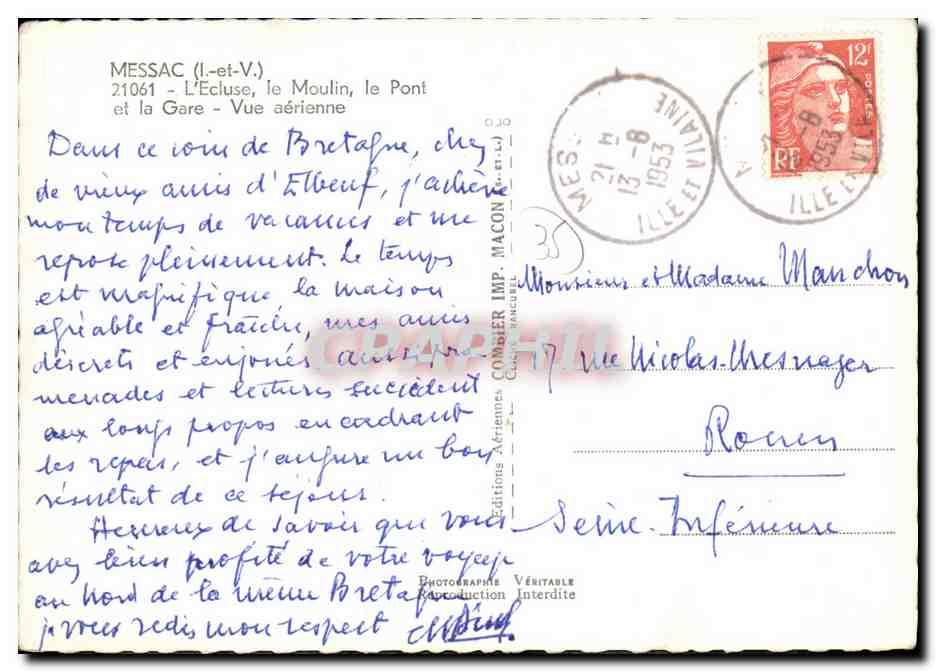 MESSAC (I.-et-V.)
21061 - L'Ecluse, le Moulin, le Pont
et la Gare - Vue aérienne
Dans ce coin de Bretagne, chez
de vieux amis d'Elbeuf, j'achève
mon temps de vacances et me
repose pleinement. Le temps
est magnifique, la maison
agréable et fraîche, mes amis
discrets et enjoués aussi pro-
menades et lectures succèdent
aux longs propos encadrant
les repas, et j'augure un bon
résultat de ce séjour.
Heureux de savoir que vous
avez bien profité de votre voyage
au Nord de la même Bretagne
je vous redis mon respect
Editions Aériennes COMBIER IMP. MACON (S.-et-L.)
CLICHÉ RANCUREL
PHOTOGRAPHIE VÉRITABLE
Reproduction Interdite
35
MESS
21 H
13 - 8
1953
ILLE ET VILAINE
12F
POSTES
RF
- 8
1953
ILLE ET VILA
Monsieur et Madame Manchon
17 rue Nicolas-Mesnager
Rouen
Seine-Inférieure
CPAPHIL